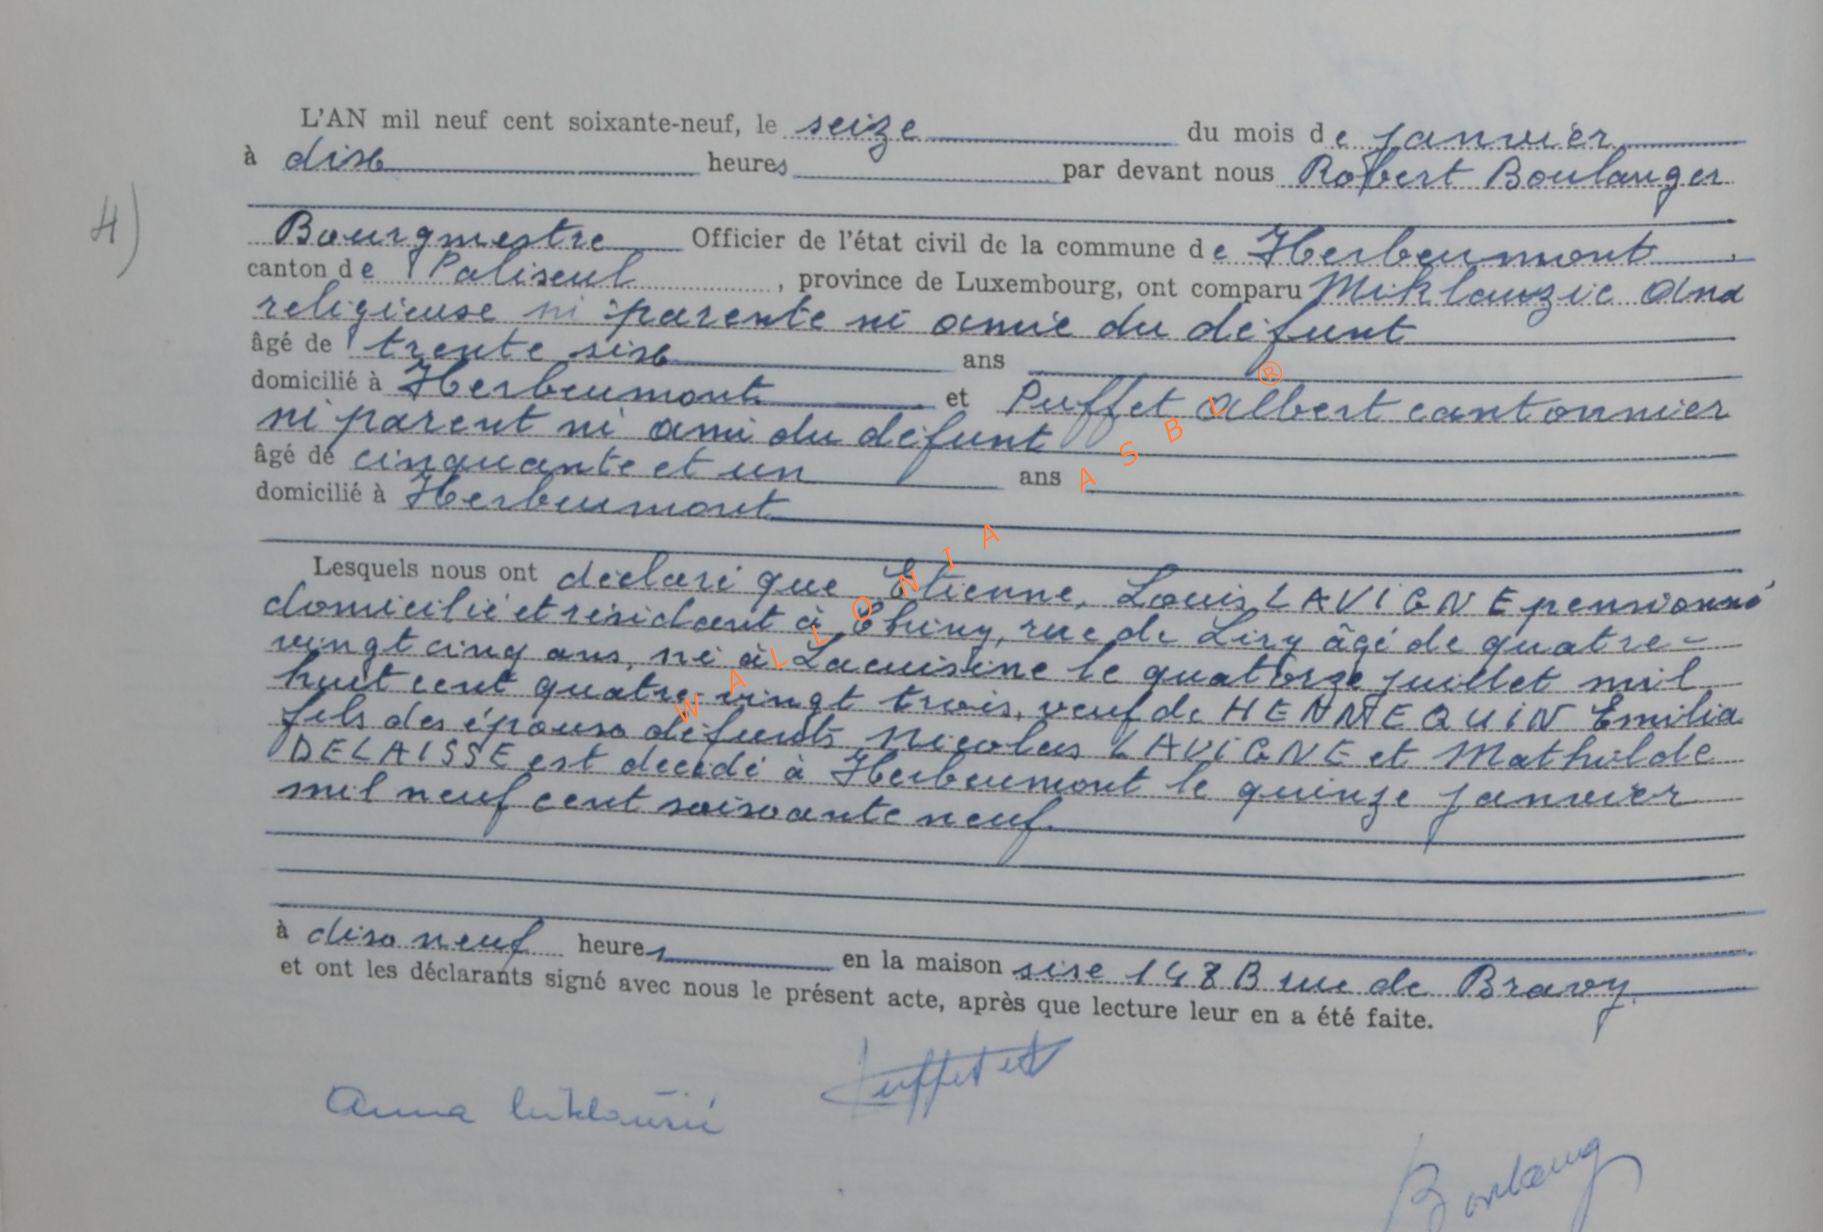 L'AN mil neuf cent soixante-neuf, le seize du mois de janvier
à dix heures par devant nous Robert Boulanger
4)
Bourgmestre Officier de l'état civil de la commune de Herbeumont
canton de Paliseul, province de Luxembourg, ont comparu Miklauzic Ana
religieuse ni parente ni amie du défunt
âgé de trente six ans
domicilié à Herbeumont et Puffet Albert cantonnier
ni parent ni ami du défunt
âgé de cinquante et un ans
domicilié à Herbeumont
Lesquels nous ont déclaré que Etienne, Louis LAVIGNE pensionné
domicilié et résidant à Chiny, rue de Liry âgé de quatre-
vingt cinq ans, né à Lacuisine le quatorze juillet mil
huit cent quatre-vingt trois, veuf de HENNEQUIN Emilia
fils des époux défunts Nicolas LAVIGNE et Mathilde
DELAISSE est décédé à Herbeumont le quinze janvier
mil neuf cent soixante neuf
à dix neuf heures en la maison sise 148 B rue de Bravy
et ont les déclarants signé avec nous le présent acte, après que lecture leur en a été faite.
Puffet
Anna Miklaužič
Boulang
WALLONIA ASBL ®